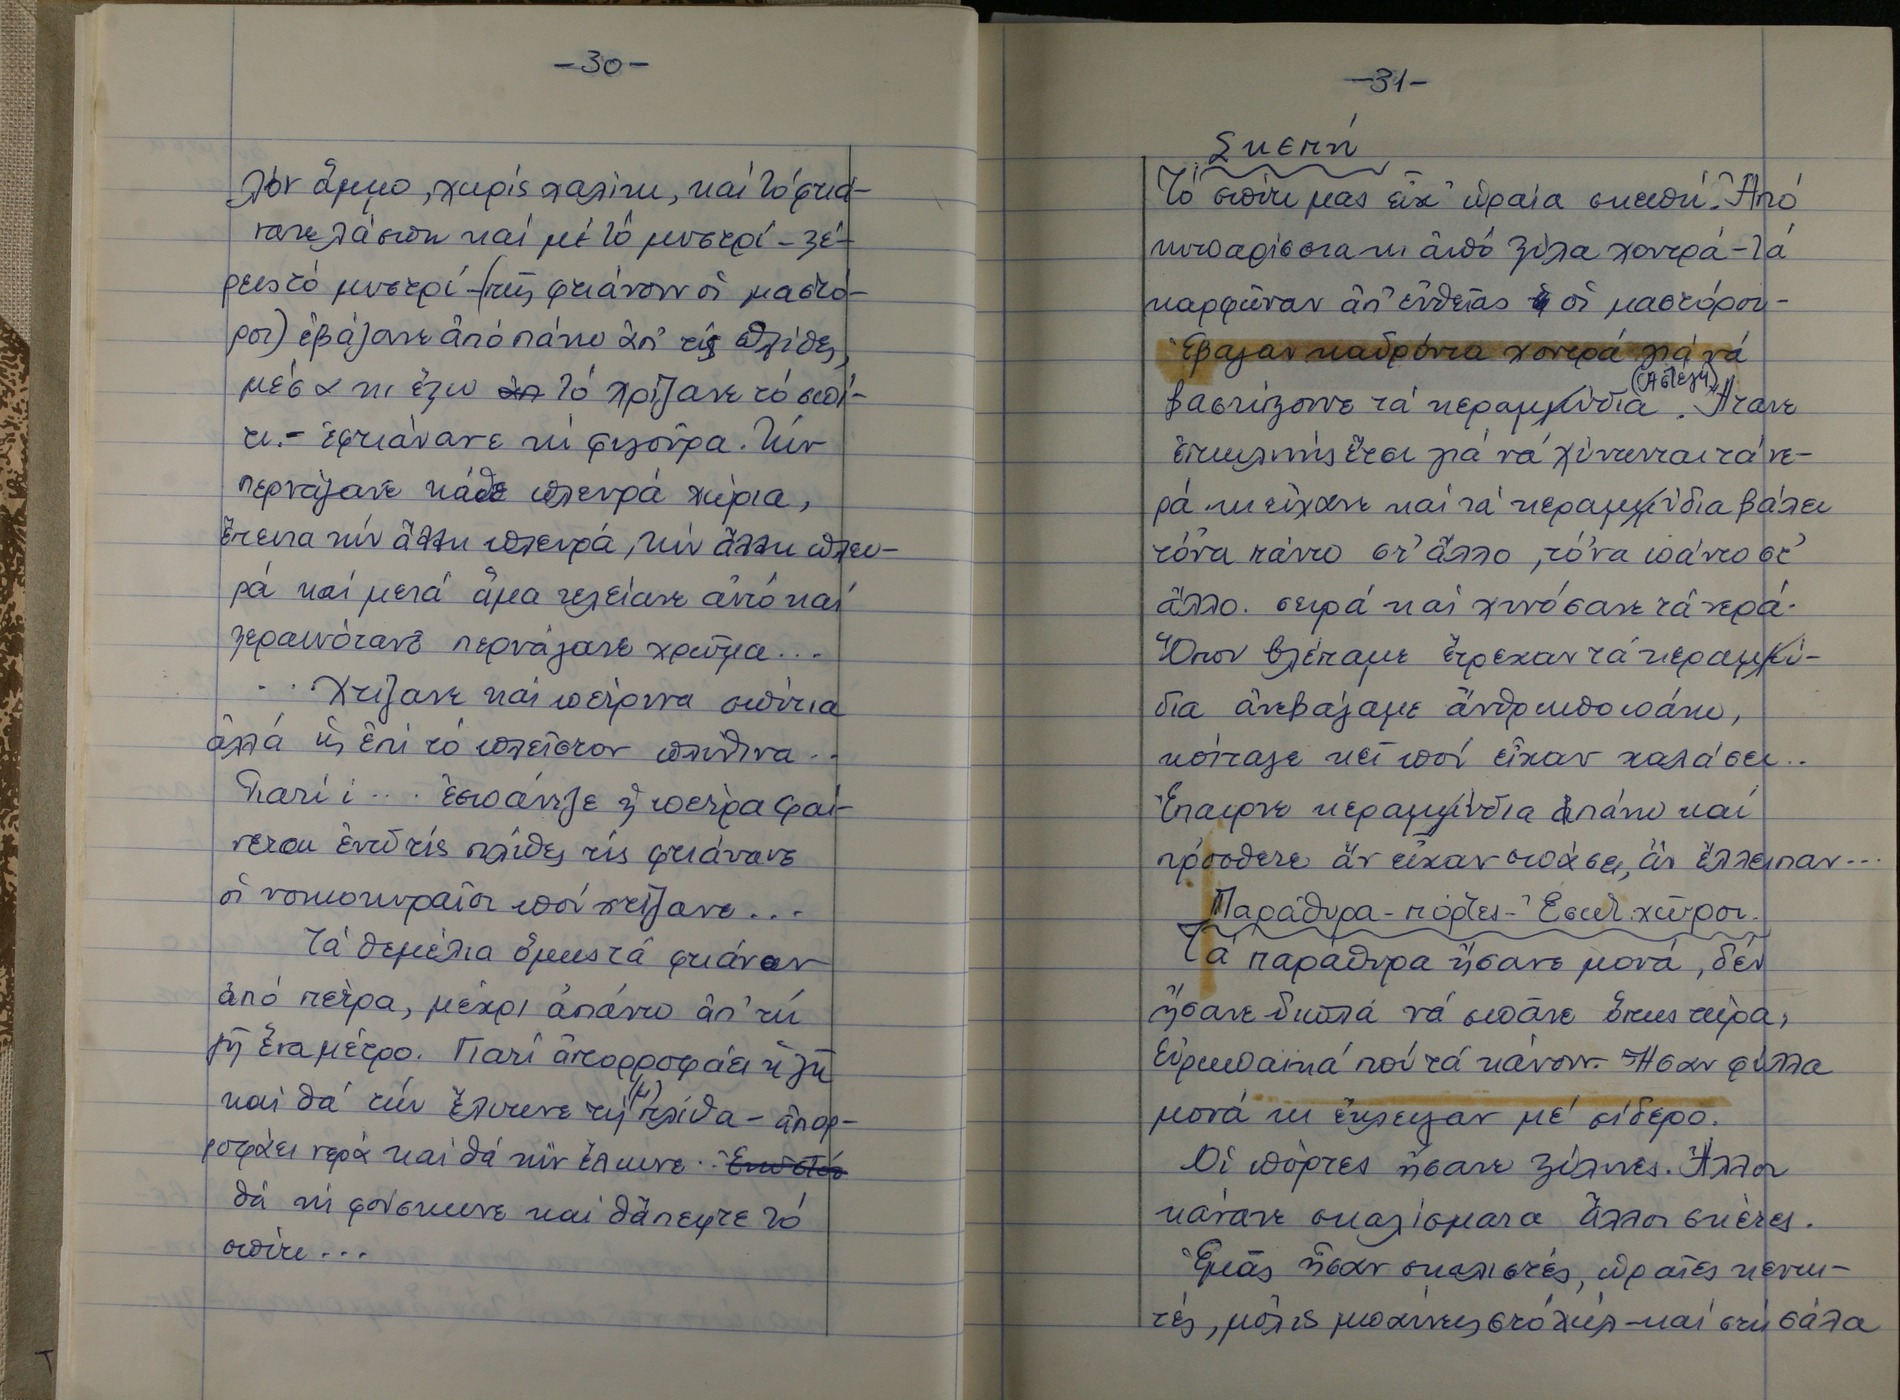 -30-
λὸν ἄμμο, χωρίς χαλίκι, καί τό φτιά-
νανε λάσπη καί μέ τό μυστρί - ξέ-
ρεις τό μυστρί - (πῶς φτιάνουν οἱ μαστό-
ροι) ἐβάζανε ἀπό πάνω ἀπ' τίς πλίθες,
μέσα κι ἔξω τό χρίζανε τό σπί-
τι.- ἐφτιάνανε κή φιγούρα. Τήν
περνάγανε κάθε πλευρά χώρια,
ἔπειτα τήν ἄλλη πλευρά, τήν ἄλλη πλευ-
ρά καί μετά ἅμα τελείωνε αὐτό καί
ξεραινότανε περνάγανε χρῶμα...
... Χτίζανε καί πέτρινα σπίτια
ἀλλά ὡς ἐπί τό πλεῖστον πλίθινα...
Γιατί i.... ἐσπάνιζε ἡ πέτρα φαί-
νεται ἐνῶ τίς πλίθες τίς φτιάνανε
οἱ νοικοκυραῖοι πού χτίζανε...
Τά θεμέλια ὅμως τά φτιάναν
ἀπό πέτρα, μέχρι ἀπάνω ἀπ' τή
γῆ ἕνα μέτρο. Γιατί ἀπορροφάει ἡ γῆ
καί θά τήν ἔλιωνε τή(ν) πλίθα - ἀπορ-
ροφάει νερά καί θά τήν ἔλιωνε..
θά τή φούσκωνε καί θἄπεφτε τό
σπίτι...
-31-
Σκεπή
Τό σπίτι μας εἶχ' ὡραία σκεπή. Ἀπό
κυπαρίσσια κι ἀπό ξύλα χοντρά - τά
καρφῶναν ἀπ' εὐθείας οἱ μαστόροι -
Ἐβάζαν καδρόνια χοντρά γιά νά
(Ἀστέγη)
βαστήξουνε τά κεραμμύδια. Ἤτανε
ἐπικλινής ἔτσι γιά νά χύνωνται τά νε-
ρά κι εἴχανε καί τά κεραμμύδια βάλει
τὄνα πάνω στ' ἄλλο, τὄνα πάνω στ'
ἄλλο. σειρά καί χυνόσανε τά νερά.
Ὅπου βλέπαμε ἔτρεχαν τά κεραμμύ-
δια ἀνεβάζαμε ἄνθρωπο πάνω,
κοίταζε κεῖ πού εἶχαν χαλάσει..
Ἔπαιρνε κεραμμύδια ἀπάνω καί
πρόσθετε ἄν εἶχαν σπάσει, ἄν ἔλλειπαν...
Παράθυρα - πόρτες - Ἐσωτ. χῶροι.
Τά παράθυρα ἤσανε μονά, δέν
ἤσανε διπλά νά σπᾶνε ὅπως τώρα,
εὐρωπαϊκά πού τά κάνουν. Ἦσαν φύλλα
μονά κι ἔκλειγαν μέ σίδερο.
Οἱ πόρτες ἤσανε ξύλινες. Ἄλλοι
κάνανε σκαλίσματα ἄλλοι σκέτες.
Ἐμᾶς ἦσαν σκαλιστές, ὡραῖες κεντη-
τές, μόλις μπαίνεις στό χώλ - καί στή σάλα